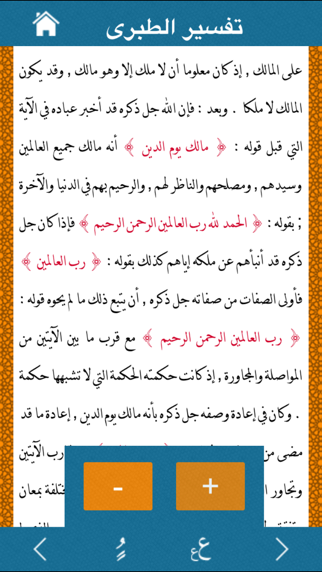 تفسير الطبرى
على المالك , إذ كان معلوما أن لا ملك إلا وهو مالك , وقد يكون
المالك لا ملكا . وبعد : فإن الله جل ذكره قد أخبر عباده في الآية
التي قبل قوله : ﴿ مالك يوم الدين ﴾ أنه مالك جميع العالمين
وسيدهم , ومصلحهم والناظر لهم , والرحيم بهم في الدنيا والآخرة
; بقوله : ﴿ الحمد لله رب العالمين الرحمن الرحيم ﴾ فإذا كان جل
ذكره قد أنبأهم عن ملكه إياهم كذلك بقوله : ﴿ رب العالمين ﴾
فأولى الصفات من صفاته جل ذكره , أن يتبع ذلك ما لم يحوه قوله :
﴿ رب العالمين الرحمن الرحيم ﴾ مع قرب ما بين الآيتين من
المواصلة والمجاورة , إذ كانت حكمته الحكمة التي لا تشبهها حكمة
. وكان في إعادة وصفه جل ذكره بأنه مالك يوم الدين , إعادة ما قد
مضى من
رب الآيتين
وتجاور
ختلفة بمعان
- +
ع ع